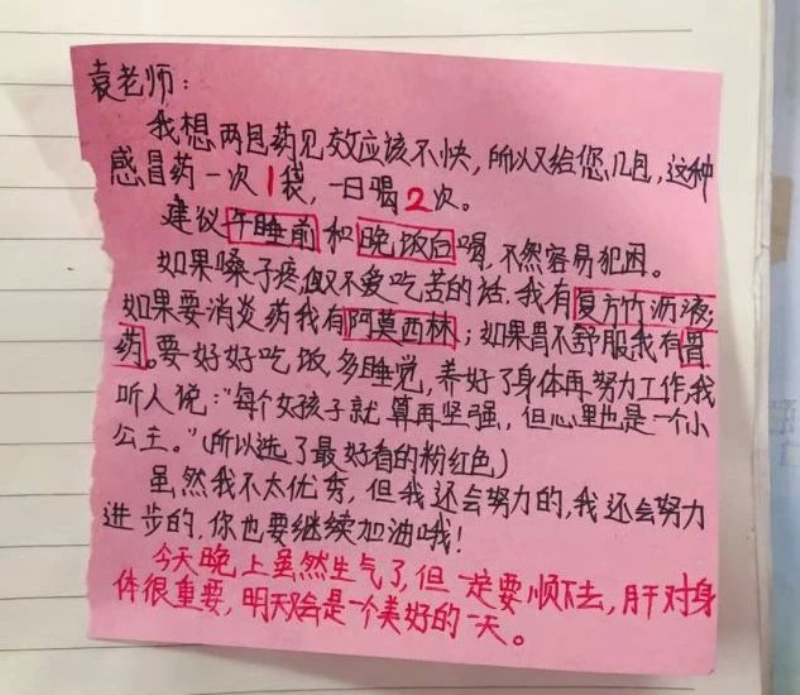 袁老师：
我想两包药见效应该不快，所以又给您几包，这种
感冒药一次1袋，一日喝2次。
建议午睡前和晚饭后喝，不然容易犯困。
如果嗓子疼，但又不爱吃苦的话，我有复方竹沥液；
如果要消炎药我有阿莫西林；如果胃不舒服我有胃
药。要好好吃饭，多睡觉，养好了身体再努力工作，我
听人说：“每个女孩子就算再坚强，但心里也是一个小
公主。”（所以选了最好看的粉红色）
虽然我不太优秀，但我还会努力的，我还会努力
进步的，你也要继续加油哦！
今天晚上虽然生气了，但一定要顺下去，肝对身
体很重要，明天又会是一个美好的一天。